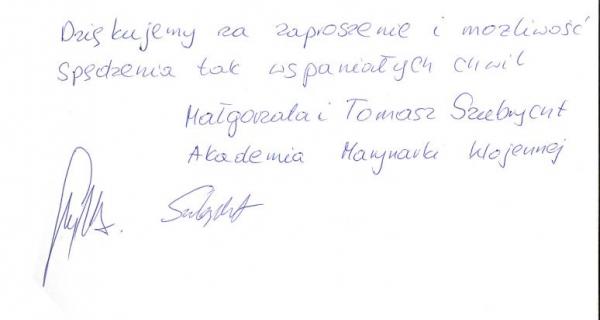 Dziękujemy za zaproszenie i możliwość
spędzenia tak wspaniałych chwil
Małgorzata i Tomasz Szubrycht
Akademia Marynarki Wojennej